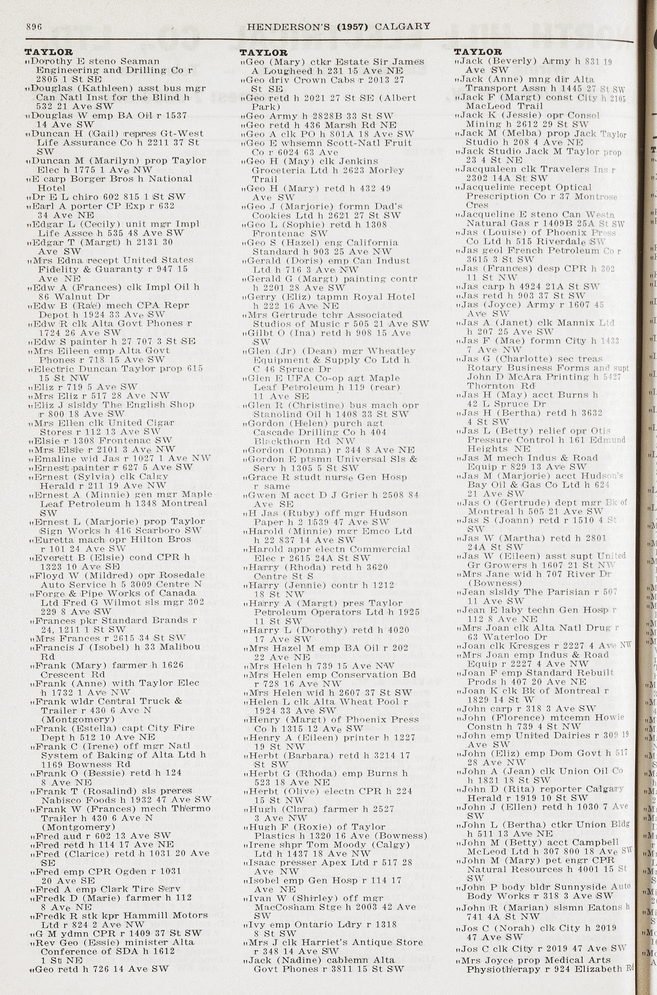 896
HENDERSON'S (1957) CALGARY
TAYLOR
"Dorothy E steno Seaman
Engineering and Drilling Co r
2805 1 St SE
"Douglas (Kathleen) asst bus mgr
Can Natl Inst for the Blind h
532 21 Ave SW
"Douglas W emp BA Oil r 1537
14 Ave SW
"Duncan H (Gail) repres Gt-West
Life Assurance Co h 2211 37 St
SW
"Duncan M (Marilyn) prop Taylor
Elec h 1775 1 Ave NW
"E carp Borger Bros h National
Hotel
"Dr E L chiro 602 815 1 St SW
"Earl A porter CP Exp r 632
34 Ave NE
"Edgar L (Cecily) unit mgr Impl
Life Assce h 535 48 Ave SW
"Edgar T (Margt) h 2131 30
Ave SW
"Mrs Edna recept United States
Fidelity & Guaranty r 947 15
Ave NE
"Edw A (Frances) clk Impl Oil h
86 Walnut Dr
"Edw B (Rae) mech CPA Repr
Depot h 1924 33 Ave SW
"Edw R clk Alta Govt Phones r
1724 26 Ave SW
"Edw S painter h 27 707 3 St SE
"Mrs Eileen emp Alta Govt
Phones r 718 15 Ave SW
"Electric Duncan Taylor prop 615
15 St NW
"Eliz r 719 5 Ave SW
"Mrs Eliz r 517 28 Ave NW
"Eliz J slsldy The English Shop
r 800 18 Ave SW
"Mrs Ellen clk United Cigar
Stores r 112 13 Ave SW
"Elsie r 1308 Frontenac SW
"Mrs Elsie r 2101 3 Ave NW
"Emaline wid Jas r 1027 1 Ave NW
"Ernest painter r 627 5 Ave SW
"Ernest (Sylvia) clk Calgy
Herald r 211 19 Ave NW
"Ernest A (Minnie) gen mgr Maple
Leaf Petroleum h 1348 Montreal
SW
"Ernest L (Marjorie) prop Taylor
Sign Works h 416 Scarboro SW
"Euretta mach opr Hilton Bros
r 101 24 Ave SW
"Everett B (Elsie) cond CPR h
1323 10 Ave SE
"Floyd W (Mildred) opr Rosedale
Auto Service h 5 3009 Centre N
"Forge & Pipe Works of Canada
Ltd Fred G Wilmot sls mgr 302
229 8 Ave SW
"Frances pkr Standard Brands r
24, 1211 1 St SW
"Mrs Frances r 2615 34 St SW
"Francis J (Isobel) h 33 Malibou
Rd
"Frank (Mary) farmer h 1626
Crescent Rd
"Frank (Anne) with Taylor Elec
h 1732 1 Ave NW
"Frank wldr Central Truck &
Trailer r 430 6 Ave N
(Montgomery)
"Frank (Estella) capt City Fire
Dept h 512 10 Ave NE
"Frank C (Irene) off mgr Natl
System of Baking of Alta Ltd h
1169 Bowness Rd
"Frank O (Bessie) retd h 124
8 Ave NE
"Frank T (Rosalind) sls preres
Nabisco Foods h 1932 47 Ave SW
"Frank W (Frances) mech Thermo
Trailer h 430 6 Ave N
(Montgomery)
"Fred aud r 602 13 Ave SW
"Fred retd h 114 17 Ave NE
"Fred (Clarice) retd h 1031 20 Ave
SE
"Fred emp CPR Ogden r 1031
20 Ave SE
"Fred A emp Clark Tire Serv
"Fredk D (Marie) farmer h 112
8 Ave NE
"Fredk R stk kpr Hammill Motors
Ltd r 824 2 Ave NW
"G M ydmn CPR r 1409 37 St SW
"Rev Geo (Essie) minister Alta
Conference of SDA h 1612
1 St NE
"Geo retd h 726 14 Ave SW
TAYLOR
"Geo (Mary) ctkr Estate Sir James
A Lougheed h 231 15 Ave NE
"Geo driv Crown Cabs r 2013 27
St SE
"Geo retd h 2021 27 St SE (Albert
Park)
"Geo Army h 2828B 33 St SW
"Geo retd h 436 Marsh Rd NE
"Geo A clk PO h 801A 18 Ave SW
"Geo E whsemn Scott-Natl Fruit
Co r 6024 63 Ave
"Geo H (May) clk Jenkins
Groceteria Ltd h 2623 Morley
Trail
"Geo H (Mary) retd h 432 49
Ave SW
"Geo J (Marjorie) formn Dad's
Cookies Ltd h 2621 27 St SW
"Geo L (Sophia) retd h 1308
Frontenac SW
"Geo S (Hazel) eng California
Standard h 903 25 Ave NW
"Gerald (Doris) emp Can Indust
Ltd h 716 3 Ave NW
"Gerald G (Margt) painting contr
h 2201 28 Ave SW
"Gerry (Eliz) tapmn Royal Hotel
h 222 16 Ave NE
"Mrs Gertrude tchr Associated
Studios of Music r 505 21 Ave SW
"Gilbt O (Ina) retd h 908 15 Ave
SW
"Glen (Jr) (Dean) mgr Wheatley
Equipment & Supply Co Ltd h
C 46 Spruce Dr
"Glen E UFA Co-op agt Maple
Leaf Petroleum h 119 (rear)
11 Ave SE
"Glen R (Christine) bus mach opr
Stanolind Oil h 1408 33 St SW
"Gordon (Helen) purch agt
Cascade Drilling Co h 404
Blackthorn Rd NW
"Gordon (Donna) r 344 8 Ave NE
"Gordon E ptsmn Universal Sls &
Serv h 1305 5 St SW
"Grace R studt nurse Gen Hosp
r same
"Gwen M acct D J Grier h 2508 84
Ave SE
"H Jas (Ruby) off mgr Hudson
Paper h 2 1539 47 Ave SW
"Harold (Minnie) mgr Emco Ltd
h 22 837 14 Ave SW
"Harold appr electn Commercial
Elec r 2615 24A St SW
"Harry (Rhoda) retd h 3620
Centre St S
"Harry (Jennie) contr h 1212
18 St NW
"Harry A (Margt) pres Taylor
Petroleum Operators Ltd h 1925
11 St SW
"Harry L (Dorothy) retd h 4020
17 Ave SW
"Mrs Hazel M emp BA Oil r 202
22 Ave NE
"Mrs Helen h 739 15 Ave NW
"Mrs Helen emp Conservation Bd
r 728 16 Ave NW
"Mrs Helen wid h 2607 37 St SW
"Helen L clk Alta Wheat Pool r
1924 33 Ave SW
"Henry (Margt) of Phoenix Press
Co h 1315 12 Ave SW
"Henry A (Eileen) printer h 1227
19 St NW
"Herbt (Barbara) retd h 3214 17
St SW
"Herbt G (Rhoda) emp Burns h
523 18 Ave NE
"Herbt (Olive) electn CPR h 224
15 St NW
"Hugh (Clera) farmer h 2527
3 Ave NW
"Hugh F (Roxie) of Taylor
Plastics h 1320 16 Ave (Bowness)
"Irene shpr Tom Moody (Calgy)
Ltd h 1437 18 Ave NW
"Isaac presser Apex Ltd r 517 28
Ave NW
"Isobel emp Gen Hosp r 114 17
Ave NE
"Ivan W (Shirley) off mgr
MacCosham Stge h 2003 42 Ave
SW
"Ivy emp Ontario Ldry r 1318
8 St SW
"Mrs J clk Harriet's Antique Store
r 348 14 Ave SW
"Jack (Nadine) cablemn Alta
Govt Phones r 3811 15 St SW
TAYLOR
"Jack (Beverly) Army h 831 19
Ave SW
"Jack (Anne) mng dir Alta
Transport Assn h 1445 27 St SW
"Jack F (Margt) const City h 2165
MacLeod Trail
"Jack K (Jessie) opr Consol
Mining h 2612 29 St SW
"Jack M (Melba) prop Jack Taylor
Studio h 208 4 Ave NE
"Jack Studio Jack M Taylor prop
23 4 St NE
"Jacqualeen clk Travelers Ins r
2302 14A St SW
"Jacqueline recept Optical
Prescription Co r 37 Montrose
Cres
"Jacqueline E steno Can Westn
Natural Gas r 1409B 25A St SW
"Jas (Louise) of Phoenix Press
Co Ltd h 515 Riverdale SW
"Jas geol French Petroleum Co r
3615 3 St SW
"Jas (Frances) desp CPR h 302
11 St NW
"Jas carp h 4924 21A St SW
"Jas retd h 903 37 St SW
"Jas (Joyce) Army r 1607 45
Ave SW
"Jas A (Janet) clk Mannix Ltd
h 207 25 Ave SW
"Jas F (Mae) formn City h 1433
7 Ave NW
"Jas G (Charlotte) sec treas
Rotary Business Forms and supt
John D McAra Printing h 5427
Thornton Rd
"Jas H (May) acct Burns h
42 L Spruce Dr
"Jas H (Bertha) retd h 3632
4 St SW
"Jas L (Betty) relief opr Otis
Pressure Control h 161 Edmund
Heights NE
"Jas M mech Indus & Road
Equip r 829 13 Ave SW
"Jas M (Marjorie) acct Hudson's
Bay Oil & Gas Co Ltd h 624
21 Ave SW
"Jas O (Gertrude) dept mgr Bk of
Montreal h 505 21 Ave SW
"Jas S (Joann) retd r 1510 4 St
SW
"Jas W (Martha) retd h 2801
24A St SW
"Jas W (Eileen) asst supt United
Gr Growers h 1607 21 St NW
"Mrs Jane wid h 707 River Dr
(Bowness)
"Jean slsldy The Parisian r 507
11 Ave SW
"Jean E laby techn Gen Hosp r
112 8 Ave NE
"Mrs Joan clk Alta Natl Drug r
63 Waterloo Dr
"Joan clk Kresges r 2227 4 Ave NW
"Mrs Joan emp Indus & Road
Equip r 2227 4 Ave NW
"Joan F emp Standard Rebuilt
Prods h 407 20 Ave NE
"Joan K clk Bk of Montreal r
1829 14 St W
"John carp r 318 3 Ave SW
"John (Florence) mtcemn Howie
Constn h 739 4 St NW
"John emp United Dairies r 309 19
Ave SW
"John (Eliz) emp Dom Govt h 517
28 Ave NW
"John A (Jean) clk Union Oil Co
h 1831 18 St SW
"John D (Rita) reporter Calgary
Herald r 1919 10 St SW
"John J (Ellen) retd h 1030 7 Ave
SW
"John L (Bertha) ctkr Union Bldg
h 511 13 Ave NE
"John M (Betty) acct Campbell
McLeod Ltd h 307 800 18 Ave SW
"John M (Mary) pet engr CPR
Natural Resources h 4001 15 St
SW
"John P body bldr Sunnyside Auto
Body Works r 318 3 Ave SW
"John R (Marian) slsmn Eatons h
741 4A St NW
"Jos C (Norah) clk City h 2019
47 Ave SW
"Jos C clk City r 2019 47 Ave SW
"Mrs Joyce prop Medical Arts
Physiotherapy r 924 Elizabeth Rd